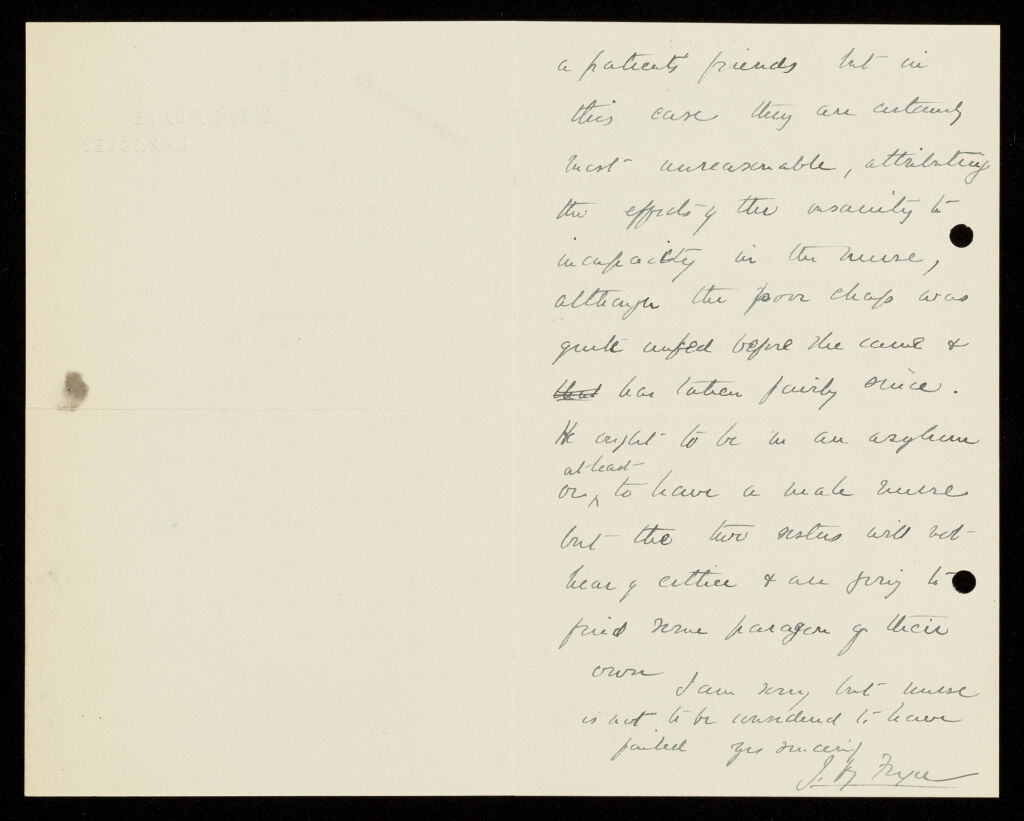 a patients friends but in
this case they are certainly
most unreasonable, attributing
the effects of the insanity to
incapacity in the nurse,
although the poor chap was
quite unfed before she came &
that has taken fairly since.
He ought to be in an asylum
at least
or to have a male nurse
but the two sisters will not
hear of either & are going to
find some paragon of their
own
I am sorry but nurse
is not to be considered to have
failed yrs sincerely